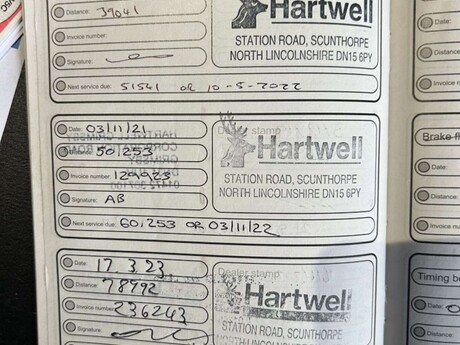 Distance: 39041
Hartwell
Invoice number:
STATION ROAD, SCUNTHORPE
Signature:
NORTH LINCOLNSHIRE DN15 6PY
Next service due: 51541 OR 10-5-2022
Date:
Distance
Invoice
Date: 03/11/21
Dealer stamp
Distance: 50,253
Hartwell
Invoice number: 129923
STATION ROAD, SCUNTHORPE
Signature: AB
NORTH LINCOLNSHIRE DN15 6PY
Next service due: 60,253 OR 03/11/22
Brake fl
Date:
Distance
Invoice
Date: 17.3.23
Dealer stamp
Distance: 78992
Hartwell
Invoice number: 236243
Signature:
STATION ROAD, SCUNTHORPE
NORTH LINCOLNSHIRE DN15 6PY
Timing be
Date:
Distance